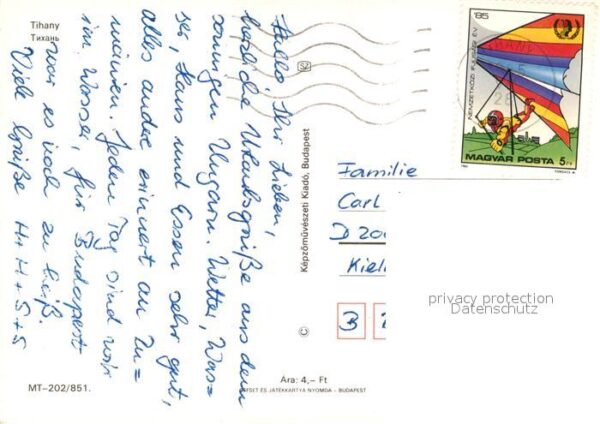 Tihany
Тихань
Hallo, Ihr Lieben,
herzliche Urlaubsgrüße aus dem
sonnigen Ungarn. Wetter, Was=
ser, Haus und Essen sehr gut,
alles andere erinnert an
Jeden Tag sind wir
im Wasser, für Budapest
war es noch zu heiß.
Viele Grüße H. H + S. + S
MT–202/851.
SZ
Képzőművészeti Kiadó, Budapest
©
Ára: 4,– Ft
OFFSET ÉS JÁTÉKKÁRTYA NYOMDA – BUDAPEST
'85
NEMZETKÖZI IFJÚSÁGI ÉV
MAGYAR POSTA 5 Ft
Familie
Carl
D 200
Kiel
privacy protection
Datenschutz